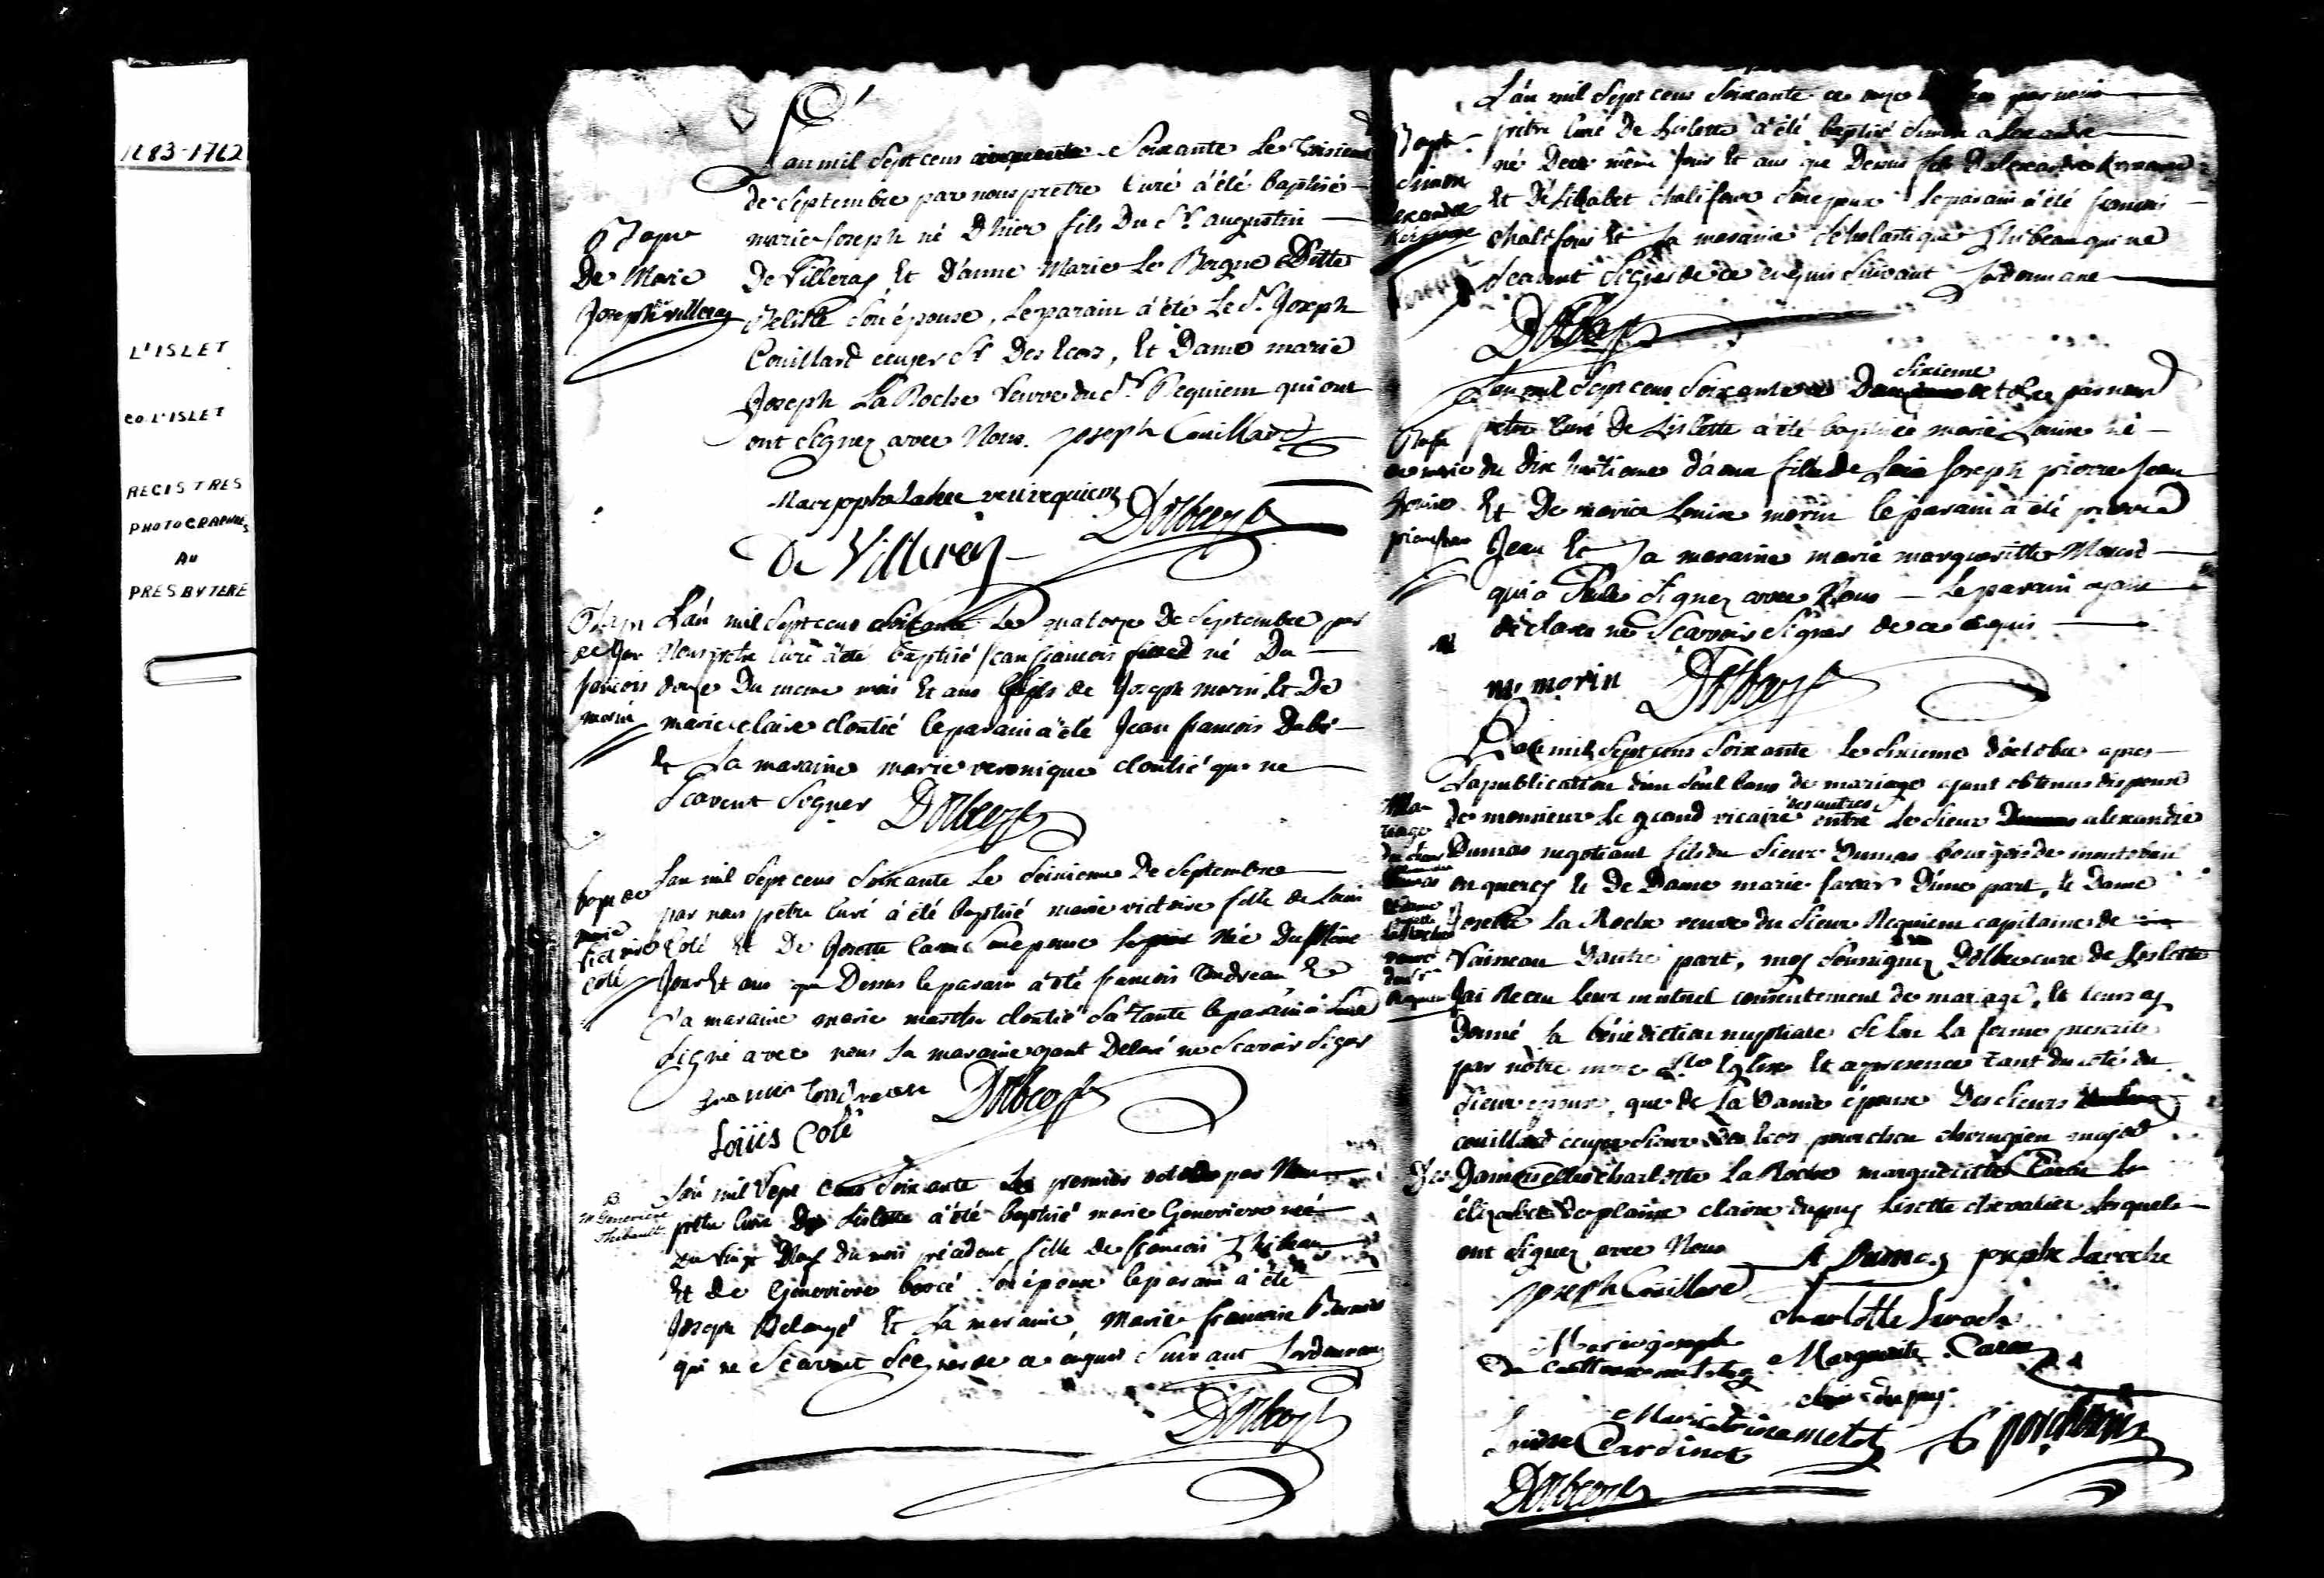 1683-1762
L'ISLET
CO. L'ISLET
REGISTRES
PHOTOGRAPHIÉS
AU
PRESBYTERE
Bapt
De Marie
Joseph villeray
L'an mil Sept cens Soixante Le Troisieme
de Septembre par nous pretre Curé a été baptisé
marie Joseph né D'hier fils Du Sr augustin
De Villeray Et D'anne Marie Le Borgne Dette
Belisle son épouse, Le parain a été Le Sr Joseph
Couillard ecuyer Sr Des Ecors, Et Dame marie
Joseph La Roche Veuve du Sr Requiem qui ont
ont Signez avec Nous. joseph Couillard
De Villeray Dolbecq ptre
françois
morin
L'an mil Sept cens Soixante Le quatorze De Septembre par
Nous pretre Curé a été baptisé Jean francois né Du
douze Du meme mois Et ans fils de Joseph morin Et De
marie claire cloutié le parain a été Jean francois Dubé
Et La maraine marie veronique cloutié qui ne
Scavent Signer Dolbecq ptre
bapt de
marie
victoire
Coté
L'an mil Sept cens Soixante Le Seisieme De Septembre
par nous pretre Curé a été baptisé marie victoire fille de Louis
Coté Et De Josette Caron Son epouse Née Du Même
Jour Et ans que Dessus le parain a été francois Tondreau Et
Sa maraine marie marthe cloutié Sa Tante le parain a
Signé avec nous La maraine ayant Declaré ne Scavoir Signer
francois Tondreau Dolbecq ptre
Loüis Coté
B
M Genevieve
Thibault
L'an mil Sept Cens Soixante Le premier octobre par Nous
pretre Curé De Lislette a été baptisé marie Genevieve née
Du Vingt Neuf du mois précédent fille de francois Thibeau
Et de Genevieve Son épouse le parain a été
Joseph Belangé Et La maraine, Marie francoise Bernier
qui ne Scavent Signer de ce enquis Suivant Lordonnance
Dolbecq ptre
Bapt
Simon
alexandre
L'an mil Sept cens Soixante par nous
prêtre Curé De Lislette a été baptisé Simon alexandre
né Dece même Jour Et ans que Dessus fils D'alexandre
Et D'Elizabet chalifour Son epouse le parain a été francois
chalifour Et La maraine Scholastique Thibeau qui ne
Scavent Signer de ce enquis Suivant Lordonnance
Dolbecq ptre
Bapt
de marie
Louise
pierre Jean
Sixieme
L'an mil Sept cens Soixante octobre par nous
pretre Curé De Lislette a été baptisée marie Louise né
du dix huitieme fille de Joseph pierre Jean
Et De marie Louise morin le parain a été pierre
Jean Et La maraine marie margueritte Morin
qui a Seule Signez avec Nous — Le parain ayant
déclaré ne Scavoir Signer de ce enquis
m morin Dolbecq ptre
Ma-
riage
L'an mil Sept cens Soixante Le Sixieme d'octobre apres
La publication d'un Seul bans de mariage ayant obtenus dispense
des autres
de monsieur Le grand vicaire entre Le Sieur alexandre
Dumas negotiant fils du Sieur Dumas bourgois de montobain
en quercy Et De Dame marie favar D'une part, Et Dame
Josette La Roche veuve du Sieur Requiem capitaine de
Vaisseau D'autre part, moy Soussigné Dolbecq curé de Lislette
Jai Recu Leur mutuel consentement de mariage, Et leurs ay
Donné la bénédiction nuptiale Selon La forme prescrite
par nôtre mere Ste Eglise Et en presence tant du côté du
Sieur epoux, que de La Dame épouse Des Sieurs
couillard ecuyer Sieur des Ecors porcheron chirurgien major
Des Damoiselles charlotte La Roche margueritte Caron
élizabet deplaine claire dupuy Lisette chevalier Lesquels
ont Signez avec Nous A Dumas josephe Laroche
joseph Couillard
charlotte Laroche
Marie joseph Marguerite Caron
claire dupuy
Dolbecq ptre